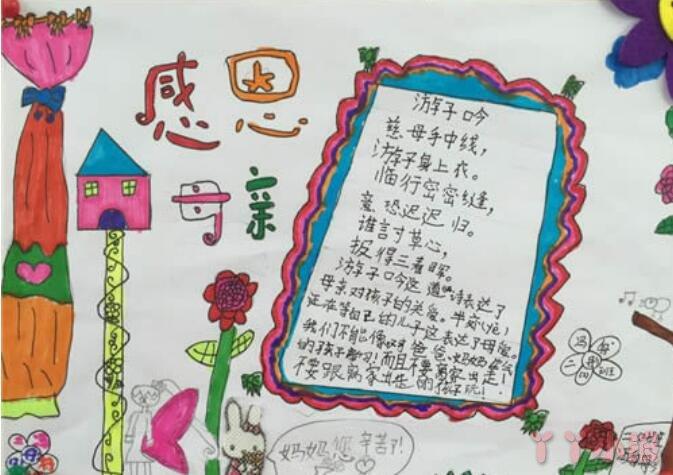 感恩
母亲
游子吟
慈母手中线，
游子身上衣。
临行密密缝，
意恐迟迟归。
谁言寸草心，
报得三春晖。
游子吟这道诗表达了
母亲对孩子的关爱。半夜
还在等自己的儿子这表达了母爱。
我们不能像 爸爸妈妈
的孩子学习！而且不要离家出走！
不要跟离家出走的孩子玩！
妈妈您辛苦了！
冯
二 班
丫丫小猪